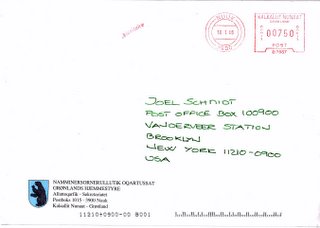 NUUK
KALAALLIT NUNAAT
00750
POST
JOEL SCHMIDT
POST OFFICE BOX 100900
VANDERVEER STATION
BROOKLYN
NEW YORK 11210-0900
USA
NAMMINERSORNERULLUTIK OQARTUSSAT
GRØNLANDS HJEMMESTYRE
Allattoqarfik - Sekretariatet
Postboks 1015 - 3900 Nuuk
Kalaallit Nunaat - Grønland
11210+0900-00 B001